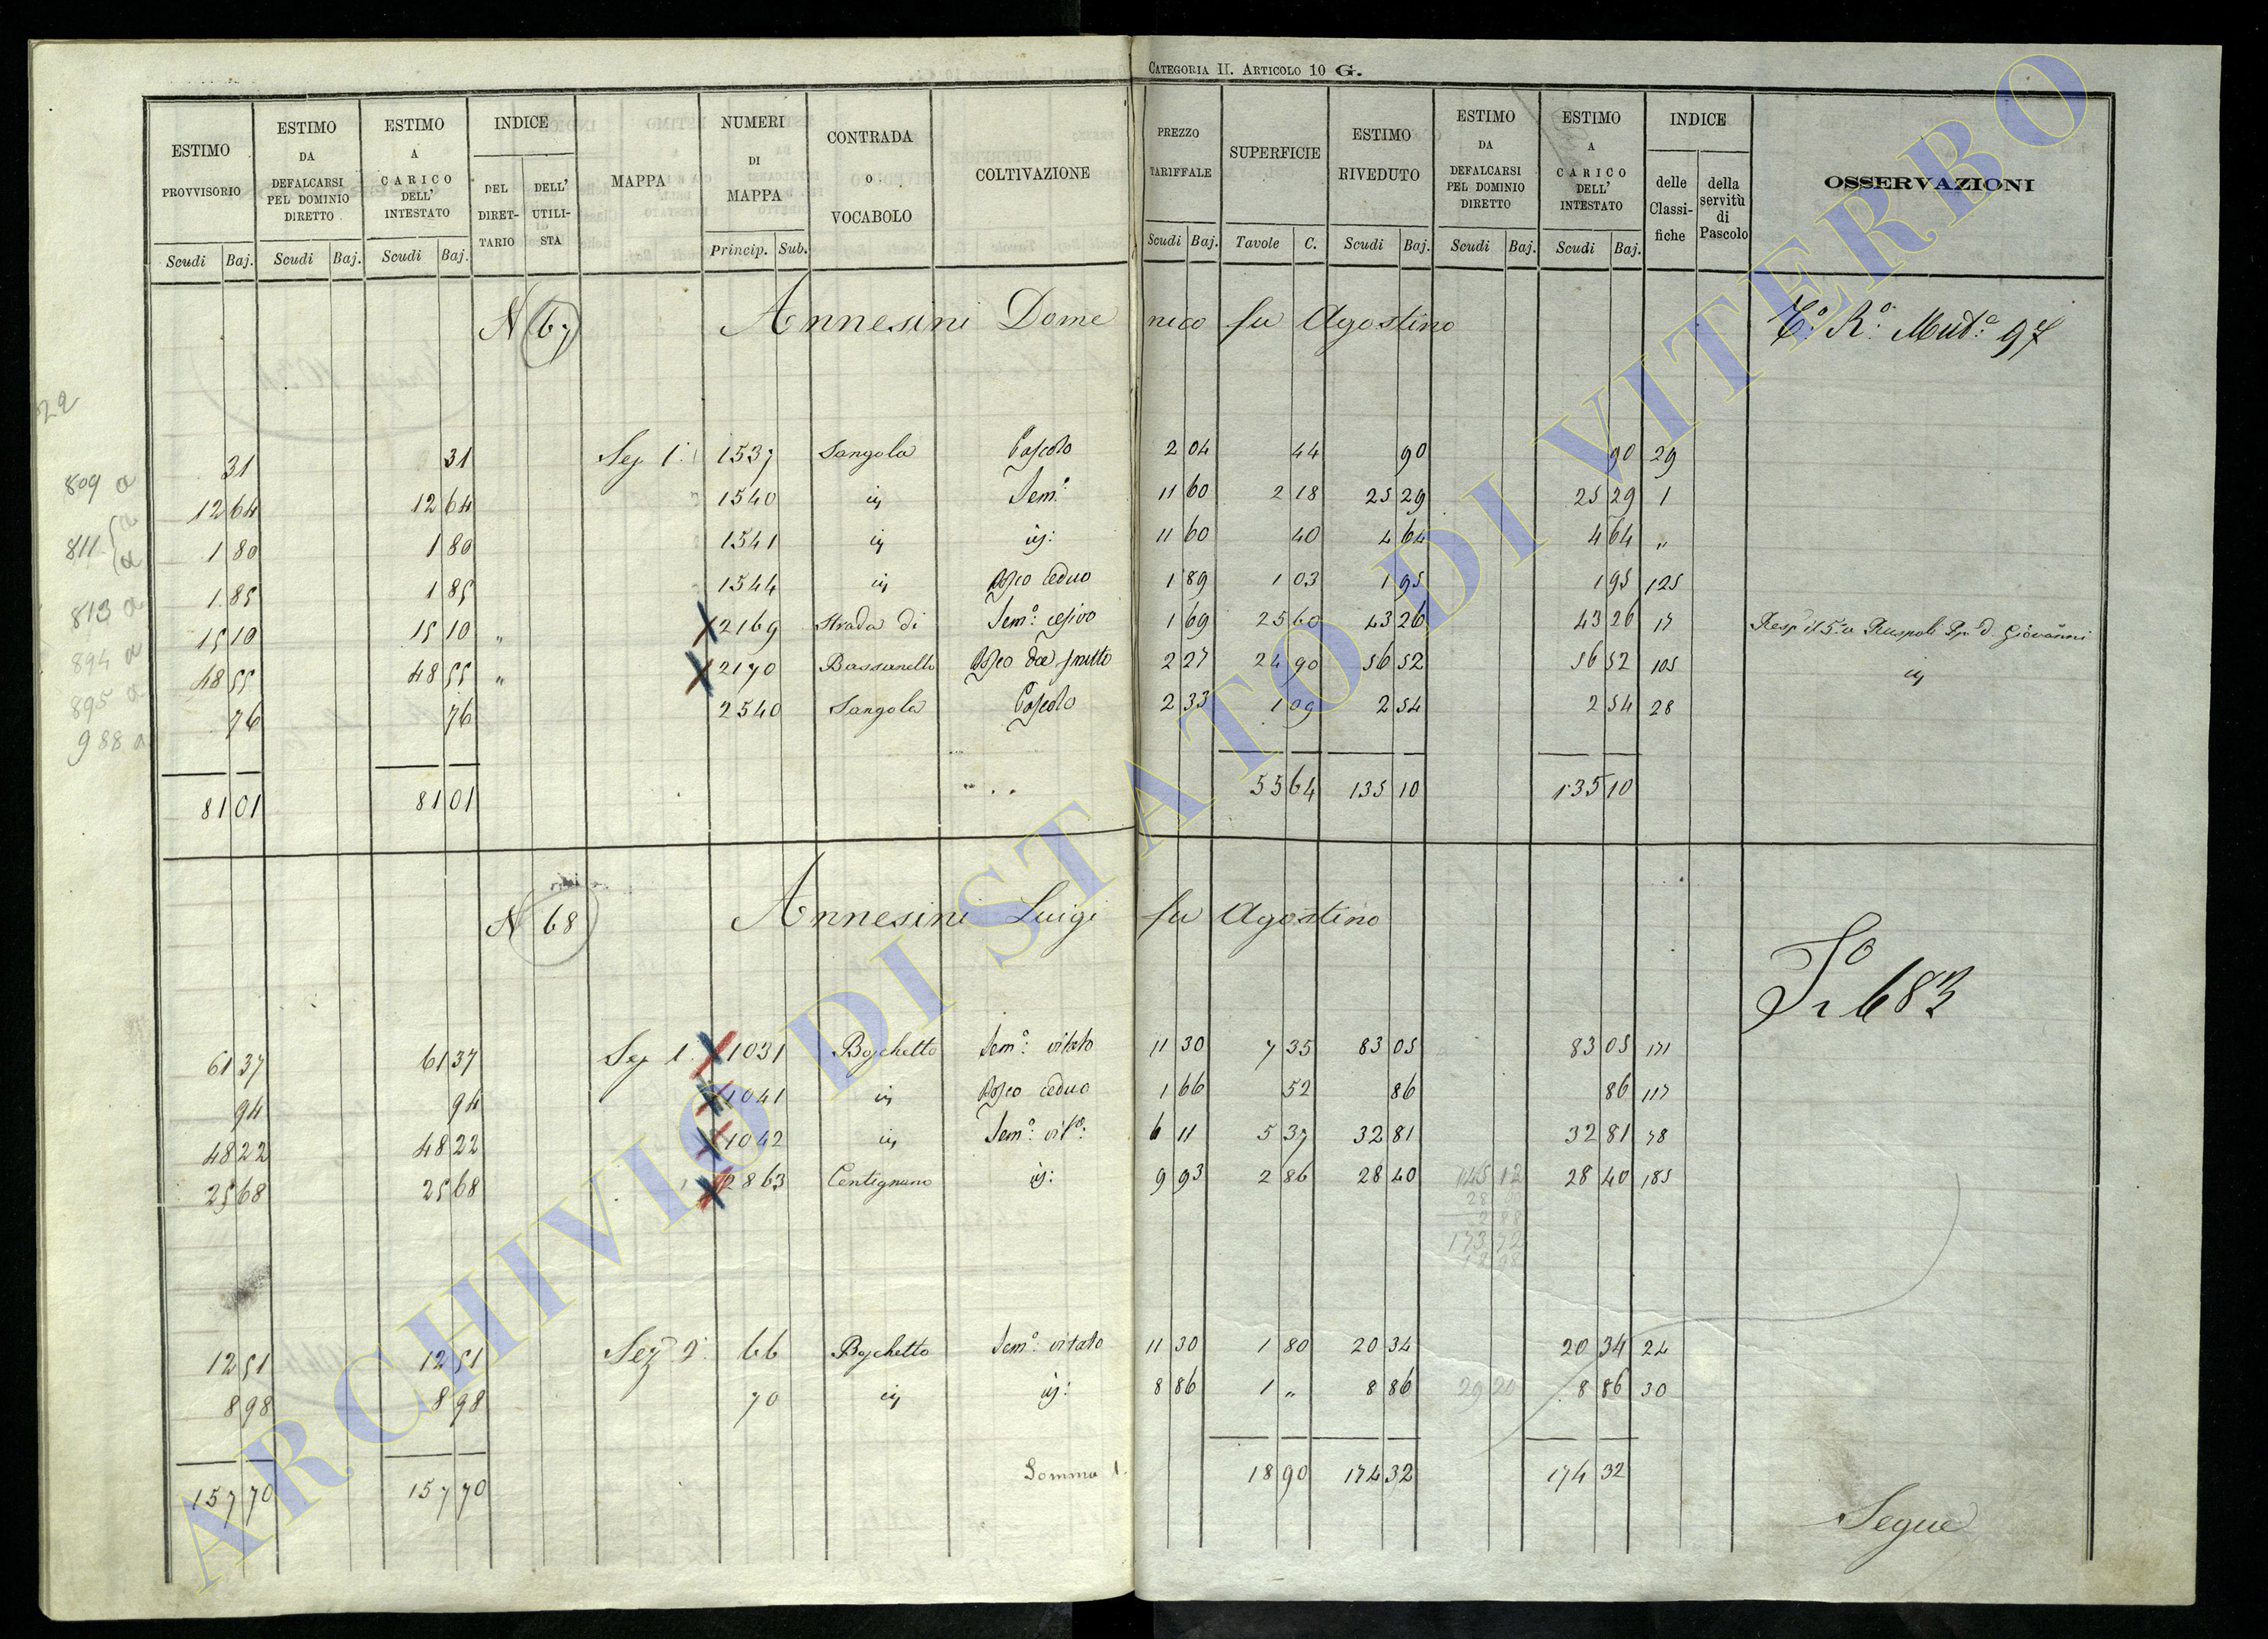 CATEGORIA II. ARTICOLO 10 G.
ESTIMO PROVVISORIO Scudi Baj. | ESTIMO DA DEFALCARSI PEL DOMINIO DIRETTO Scudi Baj. | ESTIMO A CARICO DELL' INTESTATO Scudi Baj. | INDICE DEL DIRETTARIO DELL' UTILISTA | MAPPA | NUMERI DI MAPPA Princip. Sub. | CONTRADA O VOCABOLO | COLTIVAZIONE | PREZZO TARIFFALE Scudi Baj. | SUPERFICIE Tavole C. | ESTIMO RIVEDUTO Scudi Baj. | ESTIMO DA DEFALCARSI PEL DOMINIO DIRETTO Scudi Baj. | ESTIMO A CARICO DELL' INTESTATO Scudi Baj. | INDICE delle Classifiche della servitù di Pascolo | OSSERVAZIONI
N 67 Annesini Domenico fu Agostino Mut.e 97
22
31 31 Sez 1. 1537 Sangola Pascolo 2 04 44 90 90 29
809 a 12 64 12 64 1540 id Sem.o 11 60 2 18 25 29 25 29 1
811 a a 1 80 1 80 1541 id id: 11 60 40 4 64 4 64 "
813 a 1 85 1 85 1544 id Bosco ceduo 1 89 1 03 1 95 1 95 125
894 a 15 10 15 10 " 2169 Strada di Sem.o cesivo 1 69 25 60 43 26 43 26 17 Ruspoli Giovanni
895 a 48 55 48 55 " 2170 Bassanello Bosco da frutto 2 27 24 90 56 52 56 52 105 id
988 a 76 76 2540 Sangola Pascolo 2 33 1 09 2 54 2 54 28
81 01 81 01 55 64 135 10 135 10
N 68 Annesini Luigi fu Agostino
683
61 37 61 37 Sez 1. 1031 Boschetto Sem.o vitato 11 30 7 35 83 05 83 05 171
94 94 1041 id Bosco ceduo 1 66 52 86 86 117
48 22 48 22 1042 id Sem.o vit.o: 6 11 5 37 32 81 32 81 78
25 68 25 68 2863 Centignano id: 9 93 2 86 28 40 145 12 28 40 185
173 72
12 51 12 51 Sez 2. 66 Boschetto Sem.o vitato 11 30 1 80 20 34 20 34 24
8 98 8 98 70 id id: 8 86 1 " 8 86 29 20 8 86 30
157 70 157 70 Somma 18 90 174 32 174 32
Segue
ARCHIVIO DI STATO DI VITERBO